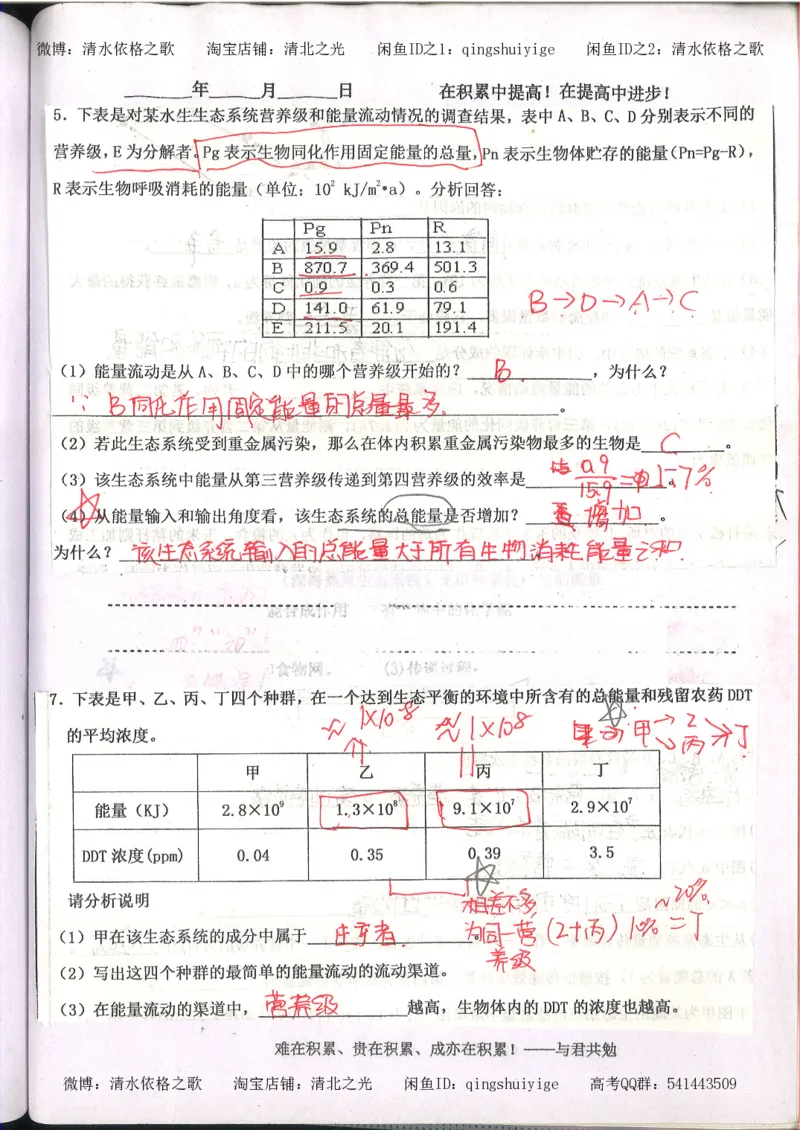 微博：清水依格之歌 淘宝店铺：清北之光 闲鱼ID之1：qingshuiyige 闲鱼ID之2：清水依格之歌
年 月 日 在积累中提高！在提高中进步！
5．下表是对某水生生态系统营养级和能量流动情况的调查结果，表中 A、B、C、D 分别表示不同的
营养级，E 为分解者。Pg 表示生物同化作用固定能量的总量，Pn 表示生物体贮存的能量（Pn=Pg-R），
R 表示生物呼吸消耗的能量（单位：10² kJ/m²•a）。分析回答：
Pg Pn R
A 15.9 2.8 13.1
B 870.7 369.4 501.3
C 0.9 0.3 0.6
D 141.0 61.9 79.1
E 211.5 20.1 191.4
B→D→A→C
（1）能量流动是从 A、B、C、D 中的哪个营养级开始的？ B. ，为什么？
∵ B同化作用固定能量的总量最多 。
（2）若此生态系统受到重金属污染，那么在体内积累重金属污染物最多的生物是 C 。
（3）该生态系统中能量从第三营养级传递到第四营养级的效率是 0.9/15.9 = 5.7% 。
（4）从能量输入和输出角度看，该生态系统的总能量是否增加？ 增加 。
为什么？ 该生态系统输入的总能量大于所有生物消耗能量之和.
7．下表是甲、乙、丙、丁四个种群，在一个达到生态平衡的环境中所含有的总能量和残留农药 DDT
的平均浓度。
≈1×10⁸ ≈1×10⁸ 甲→乙 丙→丁
甲 乙 丙 丁
能量（KJ） 2.8×10⁹ 1.3×10⁸ 9.1×10⁷ 2.9×10⁷
DDT 浓度(ppm) 0.04 0.35 0.39 3.5
请分析说明
相差不多 ~20%
为同一营养级 (乙+丙) 10% = 丁
（1）甲在该生态系统的成分中属于 生产者.
（2）写出这四个种群的最简单的能量流动的流动渠道。
（3）在能量流动的渠道中， 营养级 越高，生物体内的 DDT 的浓度也越高。
难在积累、贵在积累、成亦在积累！——与君共勉
微博：清水依格之歌 淘宝店铺：清北之光 闲鱼ID：qingshuiyige 高考QQ群：541443509